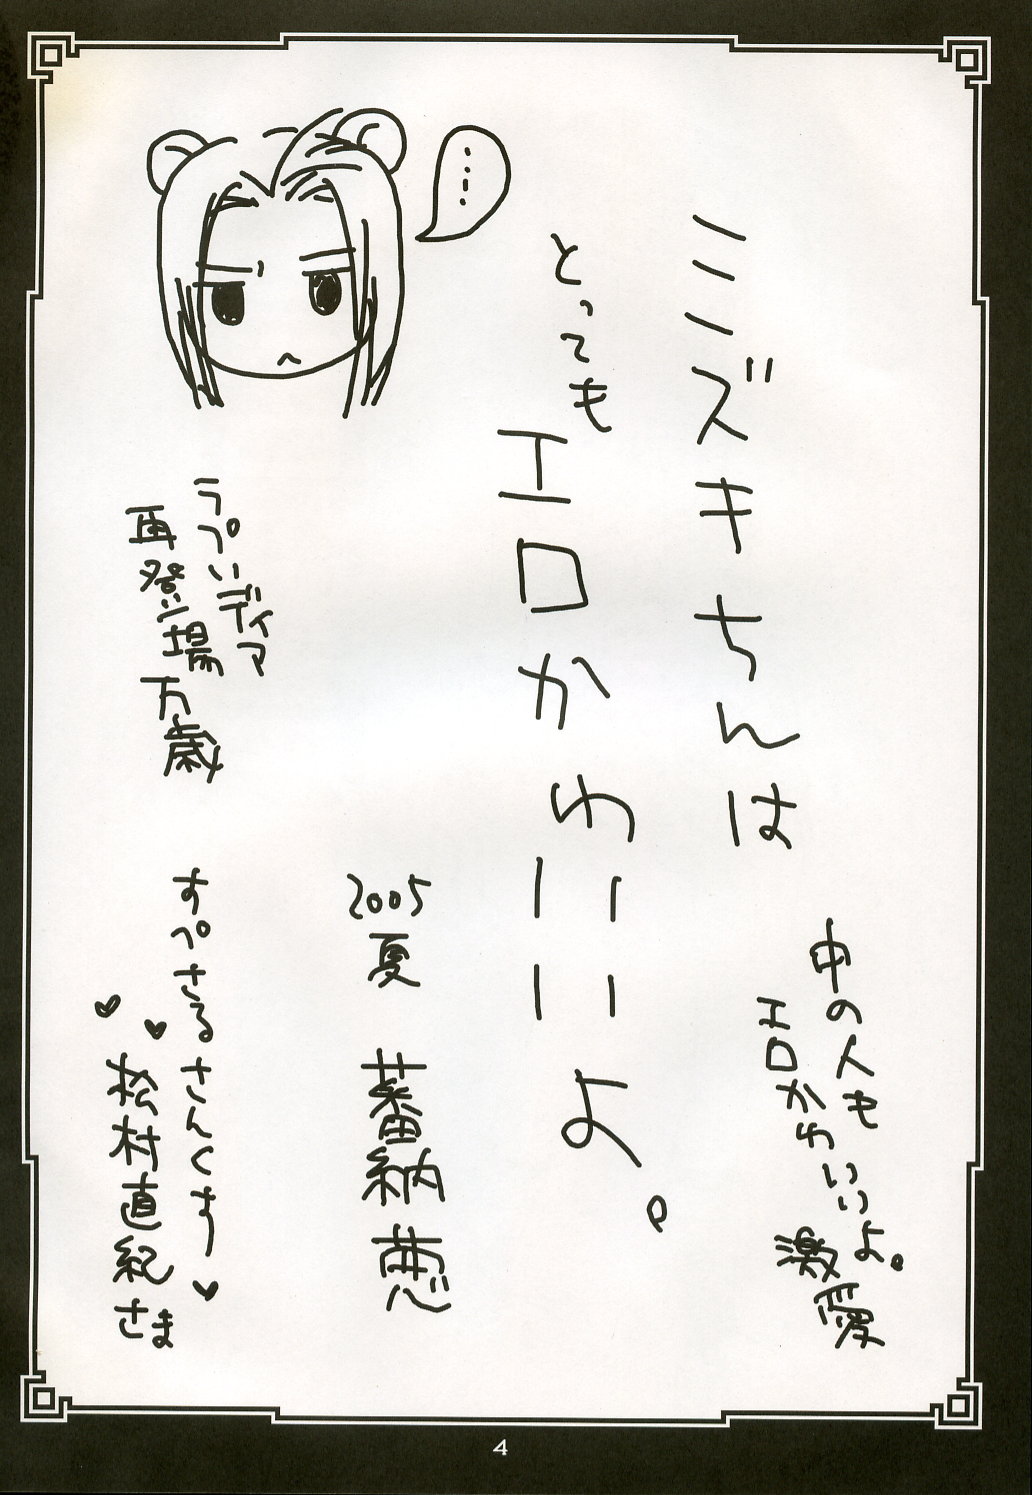 ミミズキちんは
とっても
エロかわいいよ。
中の人も
エロかわいいよ。
激愛
…
2005夏 蕃納葱
ラプいディア
再登場万歳
すぺさるさんくす
松村直紀さま
4